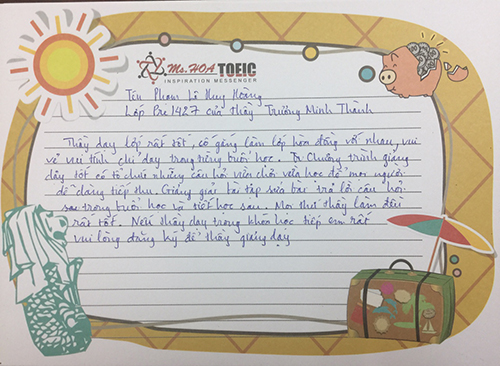 Ms.HOA TOEIC
INSPIRATION MESSENGER
Tên Phạm Lê Huy Hoàng
Lớp Pre 1427 của thầy Trương Minh Thành
Thầy dạy lớp rất tốt, cố gắng làm lớp hòa đồng với nhau, vui
vẻ vui tính chỉ dạy trong từng buổi học. Chương trình giảng
dạy tốt có tổ chức những câu hỏi vừa chơi vừa học để mọi người
dễ dàng tiếp thu. Giảng giải bài tập sửa bài trả lời câu hỏi
sau trong buổi học và tiết học sau. Mọi thứ thầy làm đều
rất tốt. Nếu thầy dạy trong khóa học tiếp em rất
vui lòng đăng ký để thầy giảng dạy